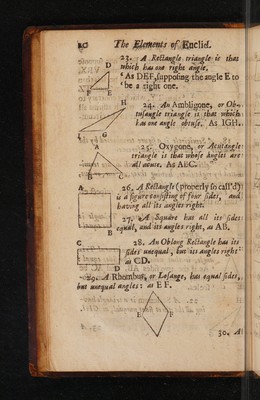 20 The Elements of Euclid.
23. A Rectangle triangle is that
which has one right angle.
'As DEF, supposing the angle E to
'be a right one.
D
F E
H
24. An Ambligone, or Ob-
tusangle triangle is that which
has one angle obtuse. As IGH.
I G
A
25. Oxygone, or Acutangle
triangle is that whose angles are
all acute. As ABC.
B C
A
26. A Rectangle (properly so call'd)
is a figure consisting of four sides, and
having all its angles right:
27. A Square has all its sides
equal, and its angles right, as AB.
B
C
28. An Oblong Rectangle has its
sides unequal, but its angles right:
as CD.
D
29. A Rhombus, or Losange, has equal sides,
but unequal angles: as EF.
E
F
30. A